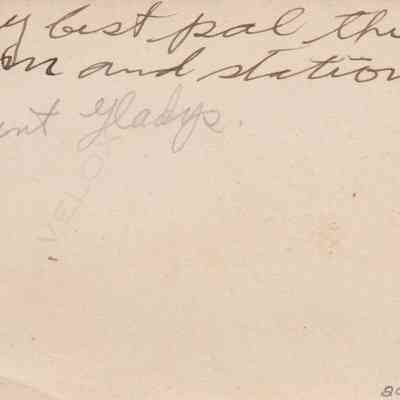 y best pal th
and station
Gladys.
VELO